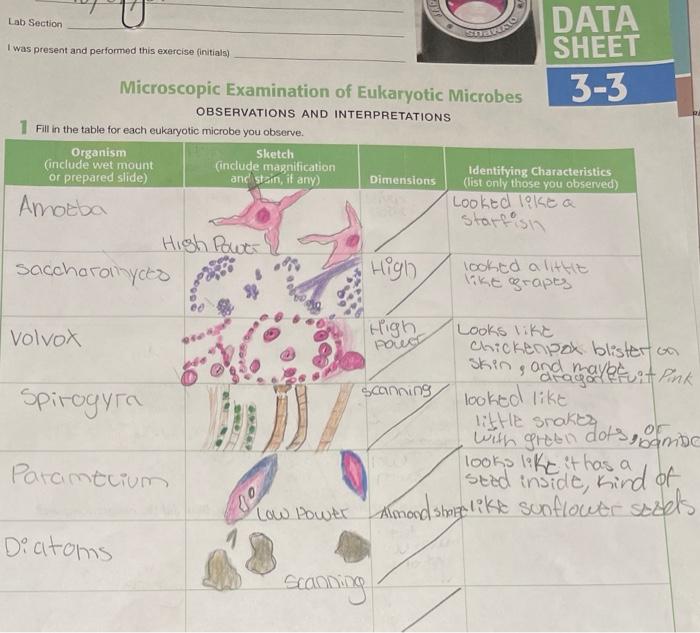 Lab Section
I was present and performed this exercise (initials)
DATA
SHEET
3-3
Microscopic Examination of Eukaryotic Microbes
OBSERVATIONS AND INTERPRETATIONS
1 Fill in the table for each eukaryotic microbe you observe.
Organism
(include wet mount
or prepared slide)
Sketch
(include magnification
and stain, if any)
Dimensions
Identifying Characteristics
(list only those you observed)
Amoeba
High Power
Looked like a
starfish
Saccharomyces
High
looked a little
like grapes
Volvox
High
power
Looks like
chickenpox blister on
skin, and maybe
dragonfruit Pink
Spirogyra
scanning
looked like
little snakes
with green dots, or
bamboo
Paramecium
Low Power
Almond shape
looks like it has a
seed inside, kind of
like sunflower seeds
Diatoms
scanning